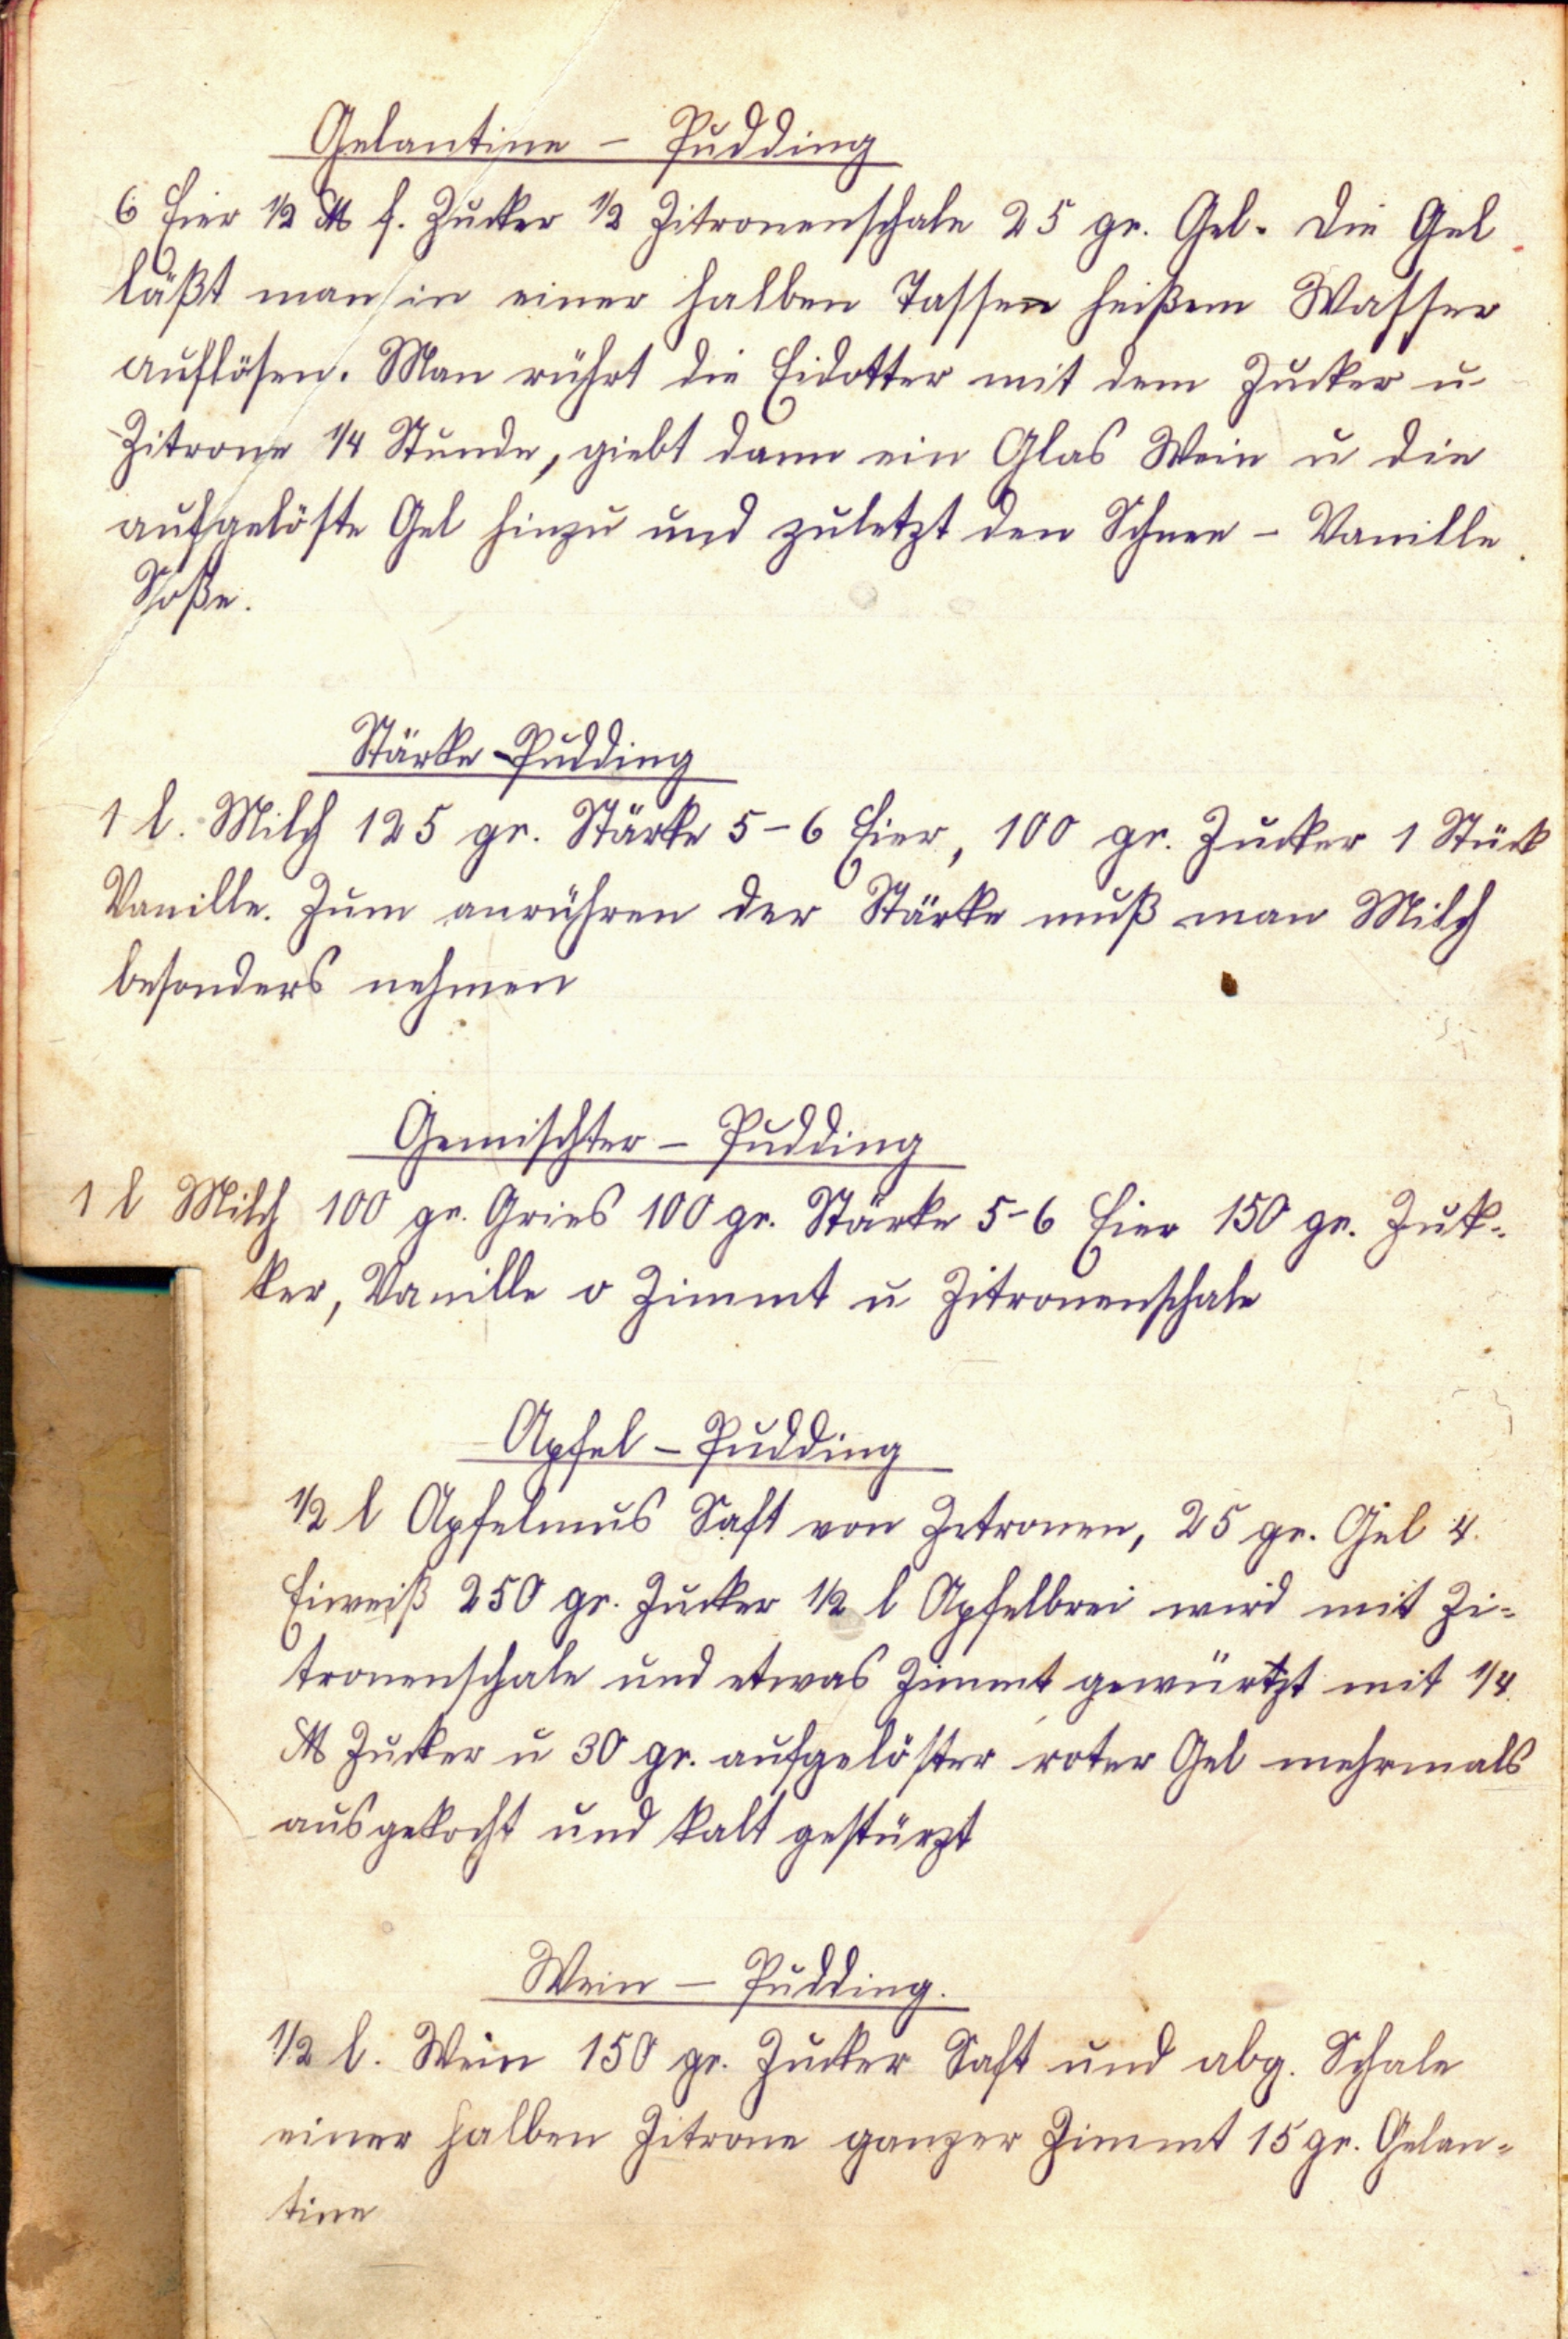 Gelantine - Pudding
6 Eier 1/2 ℔ f. Zucker 1/2 Zitronenschale 25 gr. Gel. Die Gel
läßt man in einer halben Tassen heißem Wasser
auflösen. Man rührt die Eidotter mit dem Zucker u
Zitrone 1/4 Stunde, giebt dann ein Glas Wein u die
aufgelöste Gel hinzu und zuletzt den Schnee - Vanille
Soße.
Stärke-Pudding
1 l. Milch 125 gr. Stärke 5-6 Eier, 100 gr. Zucker 1 Stück
Vanille. Zum anrühren der Stärke muß man Milch
besonders nehmen
Gemischter - Pudding
1 l Milch 100 gr. Gries 100 gr. Stärke 5-6 Eier 150 gr. Zuk-
ker, Vanille o Zimmt u Zitronenschale
Apfel - Pudding
1/2 l Apfelmus Saft von Zitronen, 25 gr. Gel 4.
Eiweiß 250 gr. Zucker 1/2 l Apfelbrei wird mit Zi-
tronenschale und etwas Zimmt gewürtzt mit 1/4.
℔ Zucker u 30 gr. aufgelöster roter Gel mehrmals
ausgekocht und kalt gestürzt
Wein - Pudding.
1/2 l. Wein 150 gr. Zucker Saft und abg. Schale
einer halben Zitrone ganzer Zimmt 15 gr. Gelan-
tine